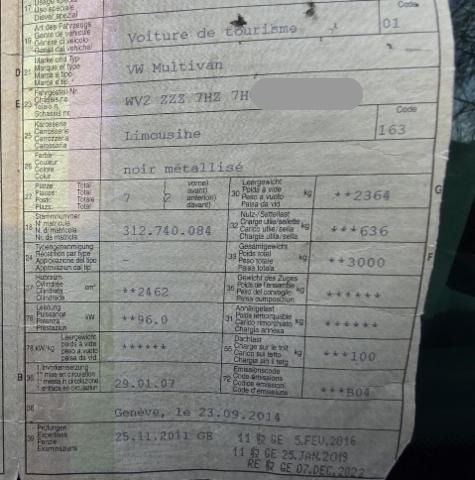 17 Usage spécial
Uso speciale
Diever spezial
Art des Fahrzeugs Code
19 Genre de véhicule Voiture de tourisme 01
Genere di veicolo
Gener dal vehichel
Marke und Typ
D 21 Marque et type VW Multivan
Marca e tipo
Marca e tip
Fahrgestell-Nr.
E 23 Châssis no WV2 ZZZ 7HZ 7H
Telaio n.
Schassis nr.
Karosserie Code
25 Carrosserie Limousine 163
Carrozzeria
Carossaria
Farbe
26 Couleur noir métallisé
Colore
Colur
Plätze: Total vorne) Leergewicht G
27 Places: Total 7 2 avant) 30 Poids à vide kg **2364
Posti: Totale anteriori) Peso a vuoto
Plazs: Total davant) Paisa da vid
Stammnummer Nutz-/Sattellast
18 N° matricule 312.740.084 32 Charge utile/sellette kg ***636
N. di matricola Carico utile/sella
Nr. da matricla Chargia utila/sella
Typengenehmigung Gesamtgewicht F
24 Réception par type 33 Poids total kg **3000
Approvazione del tipo Peso totale
Approvaziun dal tip Paisa totala
Hubraum Gewicht des Zuges
37 Cylindrée cm³ **2462 35 Poids de l'ensemble kg ******
Cilindrata Peso del convoglio
Cilindrada Paisa cumposiziun
Leistung Anhängelast
76 Puissance kW **96.0 31 Poids remorquable kg ******
Potenza Carico rimorchiato
Prestaziun Chargia annexa
Leergewicht Dachlast
78 kW/kg poids à vide ****** 55 Charge sur le toit kg ***100
peso a vuoto Carico sul tetto
paisa da vid Chargia sin il tetg
1. Inverkehrsetzung Emissionscode
B 36 1re mise en circulation 29.01.07 72 Code émissions ***B04
1a messa in circolazione Codice emissioni
1. entrada en circulaziun Code d'emissiuns
38 Genève, le 23.09.2014
Prüfungen
39 Expertises 25.11.2011 GE 11 GE 5.FEV.2016
Perizie 11 GE 25.JAN.2019
Examinaziuns RE GE 07.DEC.2022